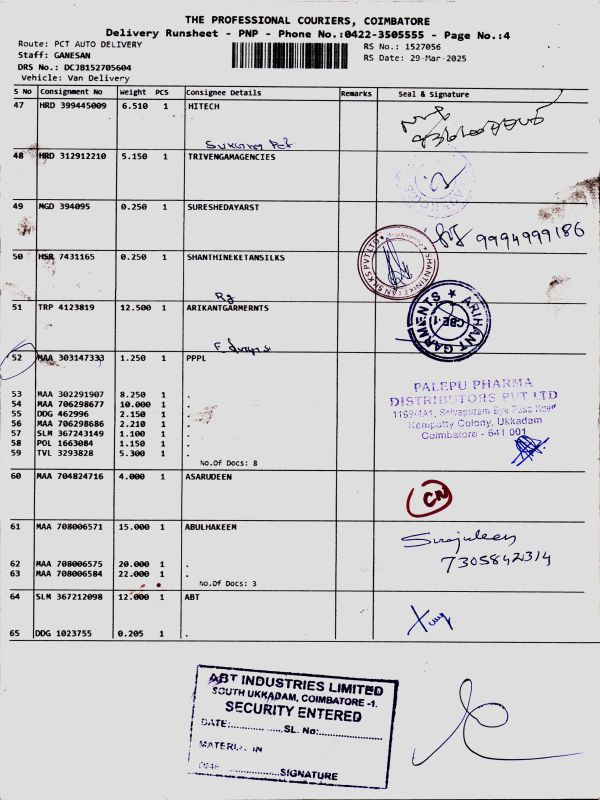 THE PROFESSIONAL COURIERS, COIMBATORE
Delivery Runsheet - PNP - Phone No.:0422-3505555 - Page No.:4
Route: PCT AUTO DELIVERY
RS No.: 1527056
Staff: GANESAN
RS Date: 29-Mar-2025
DRS No.: DCJB152705604
Vehicle: Van Delivery
S No Consignment No Weight PCS Consignee Details Remarks Seal & Signature
47 HRD 399445009 6.510 1 HITECH
48 HRD 312912210 5.150 1 TRIVENGAMAGENCIES
49 MGD 394095 0.250 1 SURESHEDAYARST
9994999186
50 HSR 7431165 0.250 1 SHANTHINEKETANSILKS
51 TRP 4123819 12.500 1 ARIKANTGARMERNTS
ARIHANT GARMENTS
CBE-1
52 MAA 303147333 1.250 1 PPPL
PALEPU PHARMA
DISTRIBUTORS PVT LTD
1169/1A1, Selvapuram Bye Pass Road
Kempatty Colony, Ukkadam
Coimbatore - 641 001
53 MAA 302291907 8.250 1 .
54 MAA 706298677 10.000 1 .
55 DDG 462996 2.150 1 .
56 MAA 706298686 2.210 1 .
57 SLM 367243149 1.100 1 .
58 POL 1663084 1.150 1 .
59 TVL 3293828 5.300 1 .
No.Of Docs: 8
60 MAA 704824716 4.000 1 ASARUDEEN
CN
61 MAA 708006571 15.000 1 ABULHAKEEM
Sirajudeen
7305842314
62 MAA 708006575 20.000 1 .
63 MAA 708006584 22.000 1 .
No.Of Docs: 3
64 SLM 367212098 12.000 1 ABT
65 DDG 1023755 0.205 1 .
ABT INDUSTRIES LIMITED
SOUTH UKKADAM, COIMBATORE -1.
SECURITY ENTERED
DATE:...............SL. No:...............
MATERIAL IN
...............SIGNATURE